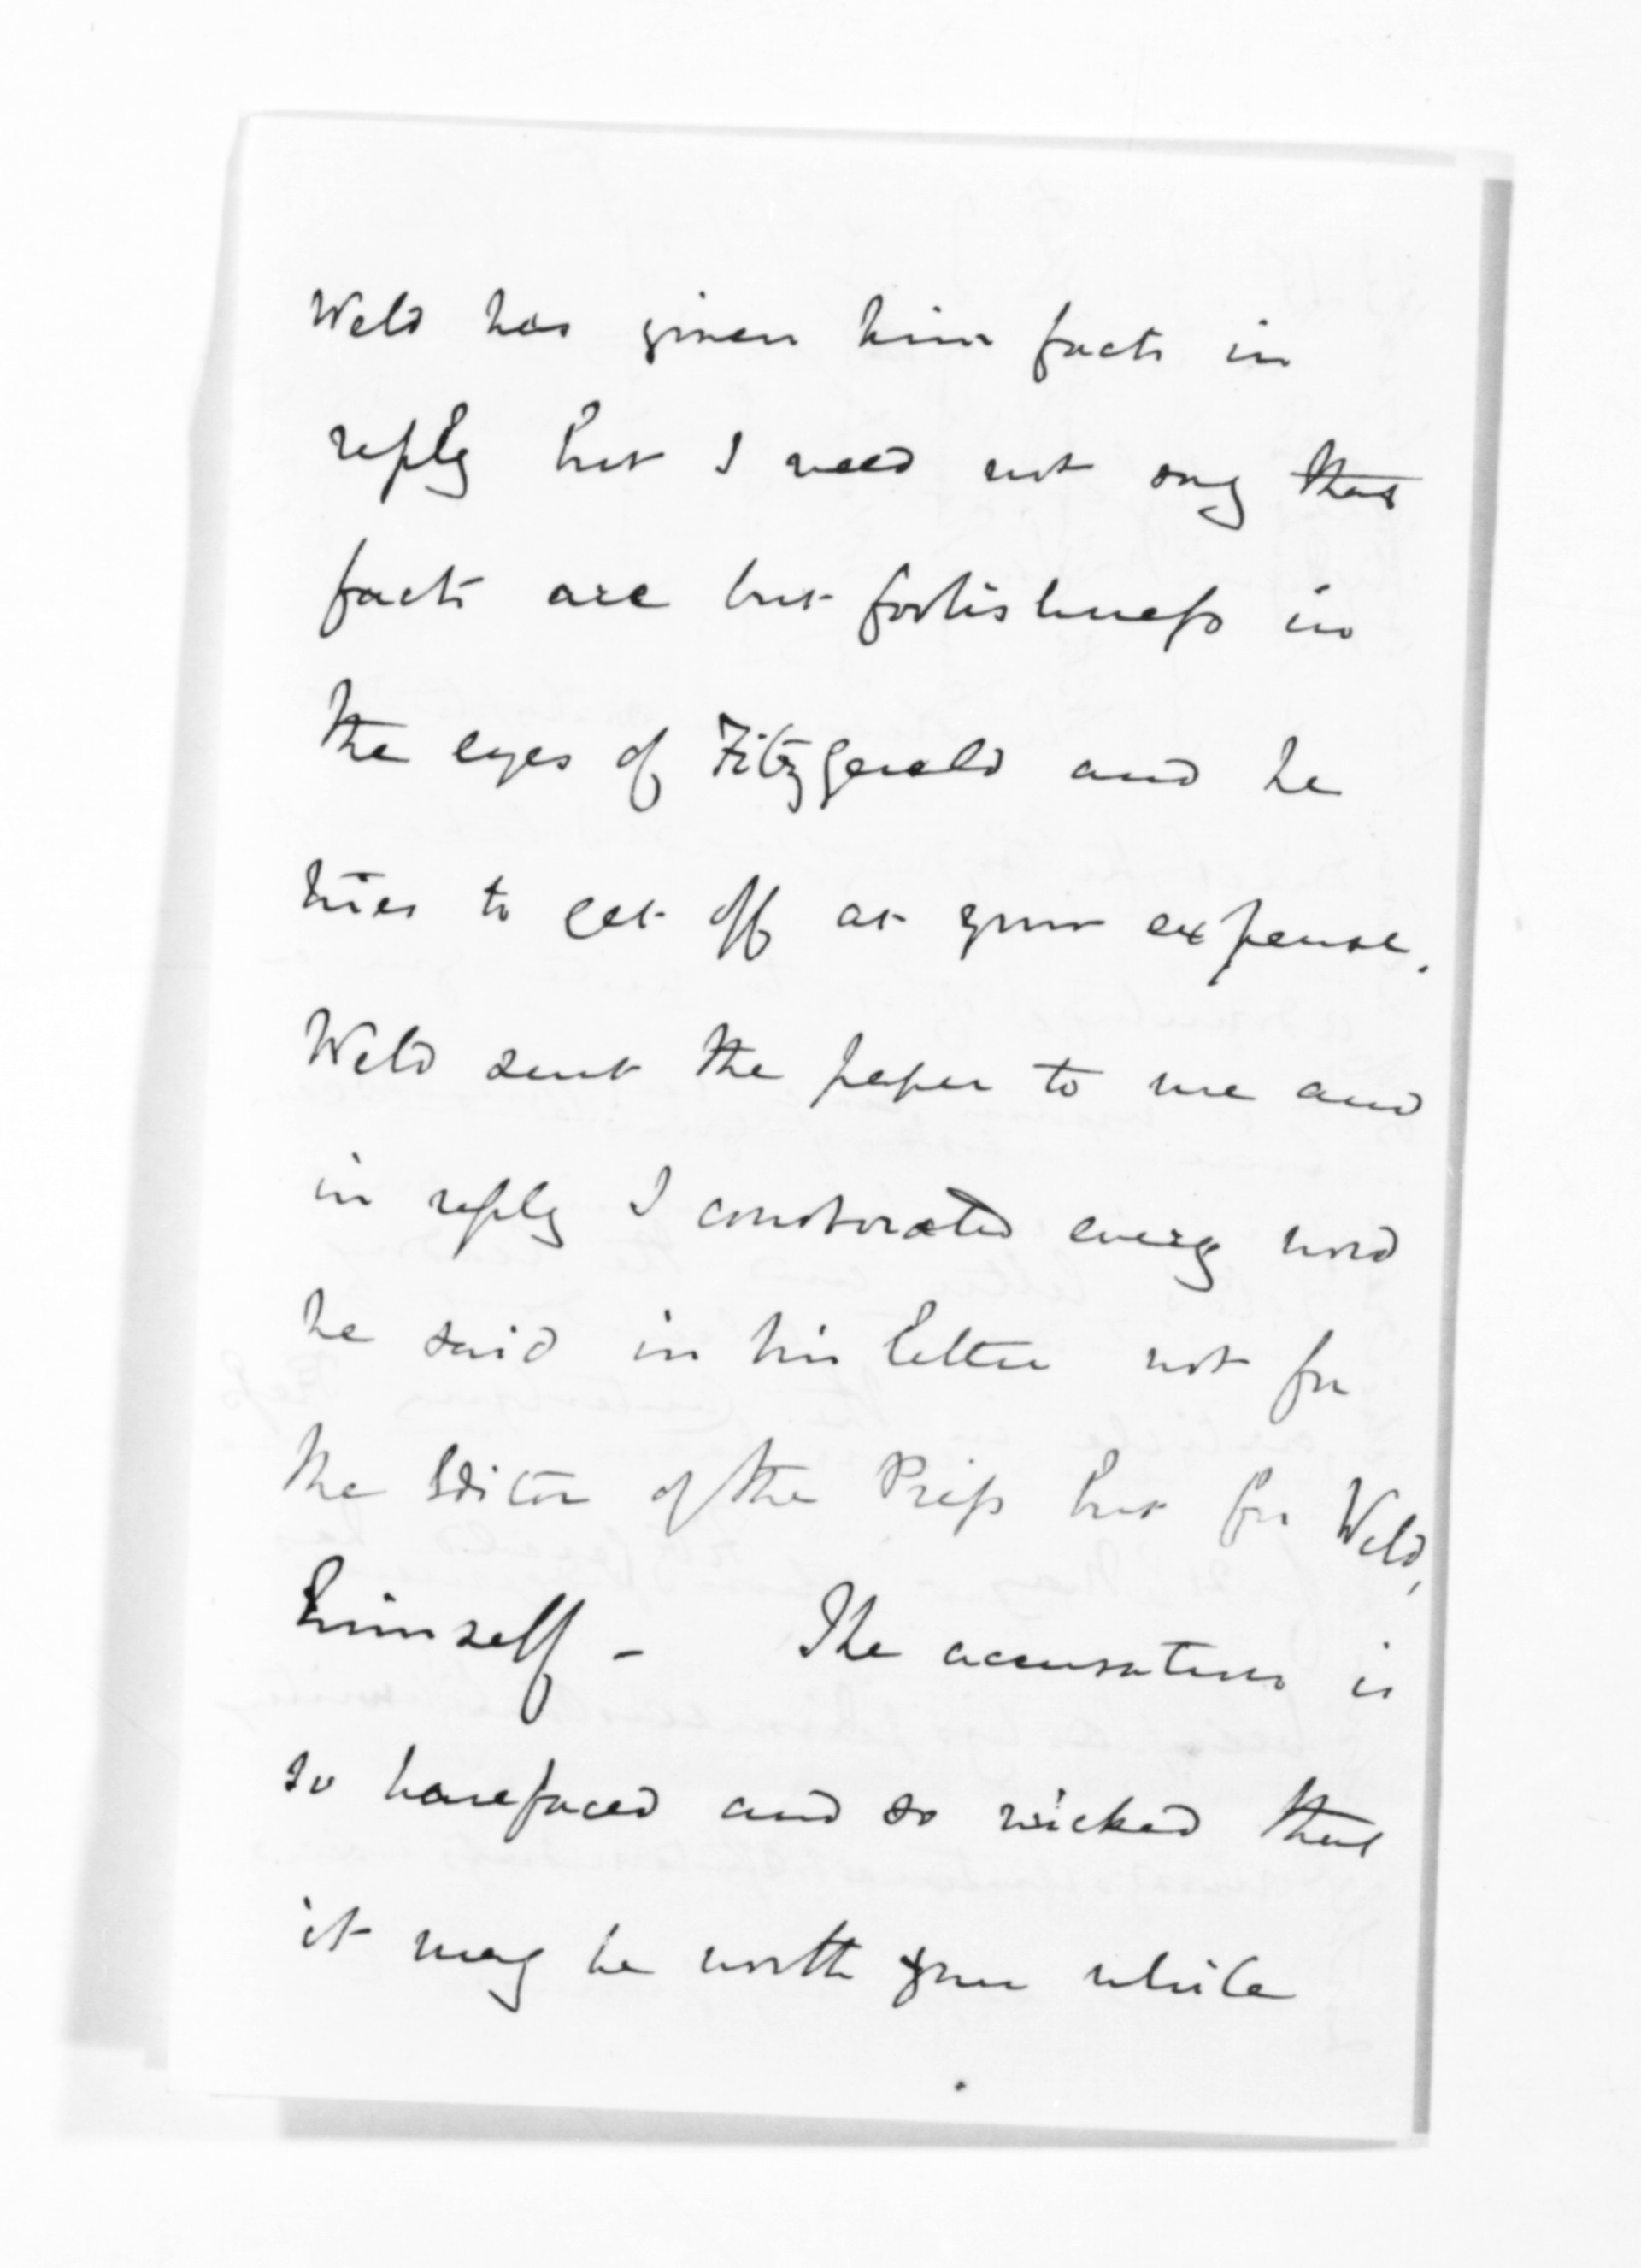 Weld has given him facts in
reply but I need not say that
facts are but foolishness in
the eyes of Fitzgerald and he
tries to get off at your expense.
Weld sent the paper to me and
in reply I corroborated every word
he said in his letter not for
the Editor of the Press but for Weld,
himself - The accusation is
so barefaced and so wicked that
it may be worth your while